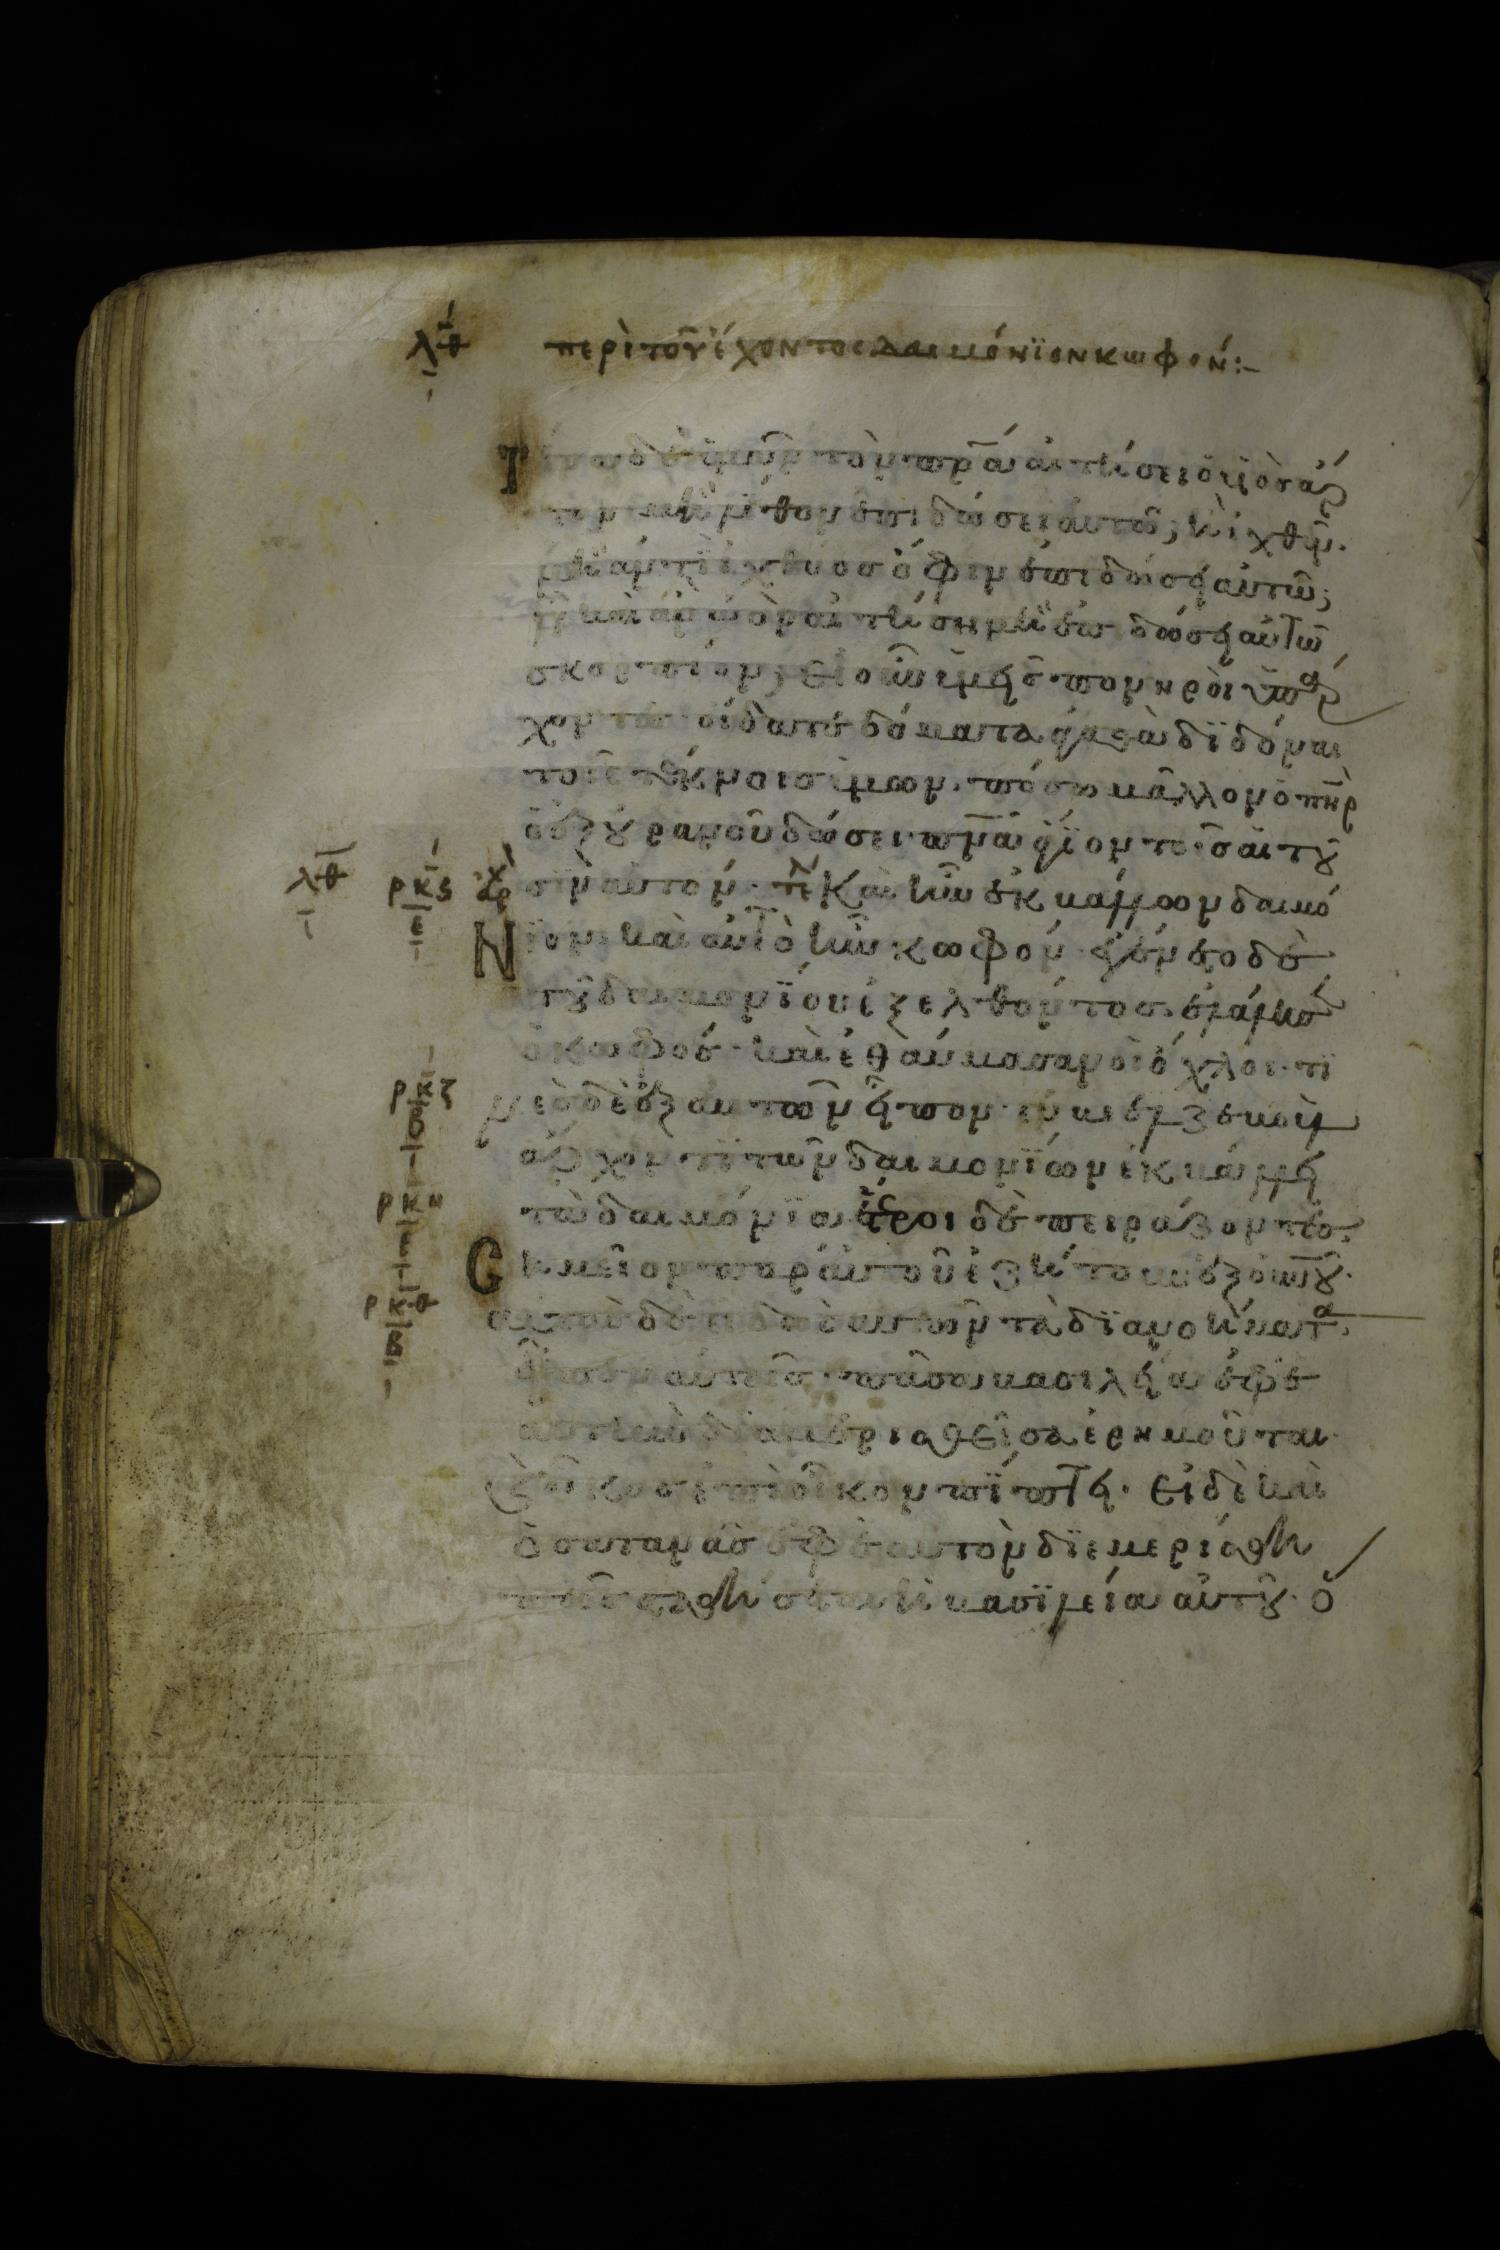 λθ περὶ τοῦ ἔχοντος δαιμόνϊον κωφόν:–
Τίνα δὲ ὑμῶν τὸν πρ̅α αἰτήσει ὁ υἱὸς ἄρ
τον μὴ λίθον ἐπιδώσει αὐτῶ; ἢ ἰχθῦν.
μὴ ἀντὶ ἰχθύος ὄφιν ἐπιδώσει αὐτῶ;
ἢ καὶ ἐὰν αἰτήση μὴ ἐπιδώσει αὐτῶ
σκορπίον; εἰ οὖν ὑμεῖς πονηροὶ ὑπάρ
χοντες οἴδατε δόματα ἀγαθὰ δϊδόναι
τοῖς τέκνοις ὑμῶν. πόσω μᾶλλον ὁ πηρ
ὁ ἐξ οὐρανοῦ δώσει πν̅α ἅγϊον τοῖς αἰτοῦ
λθ ρκϛ ε σϊν αὐτόν. τε Καὶ ἦν ἐκβάλλων δαιμό
Νϊον. καὶ αὐτὸ ἦν κωφόν. ἐγένετο δὲ
τοῦ δαιμονϊου ἐξελθόντος. ἐλάλησεν
ὁ κωφός. καὶ ἐθαύμασαν οἱ ὄχλοι. τι
ρκζ νὲς δὲ ἐξ αὐτῶν εἶπον. ἐν βεελζεβοὺλ
ἄρχοντϊ τῶν δαιμονϊων ἐκβάλλει
ρκη τὰ δαιμόνια ἕτεροι δὲ πειράζοντες.
Σημεῖον παρ' αὐτοῦ ἐζήτουν ἐξ οὐνοῦ.
ρκθ β αὐτὸς δὲ εἰδὼς αὐτῶν τὰ δϊανοήματα.
εἶπεν αὐτοῖς. πᾶσα βασιλεία ἐφ' ἑ
αυτὴν διαμερισθεῖσα ἐρημοῦται.
καὶ οἶκος ἐπὶ οἶκον πϊπτει. εἰ δὲ καὶ
ὁ σατανᾶς ἐφ' ἑαυτὸν δϊεμερίσθη
πῶς σταθήσεται ἡ βασϊλεία αὐτοῦ. ὅ